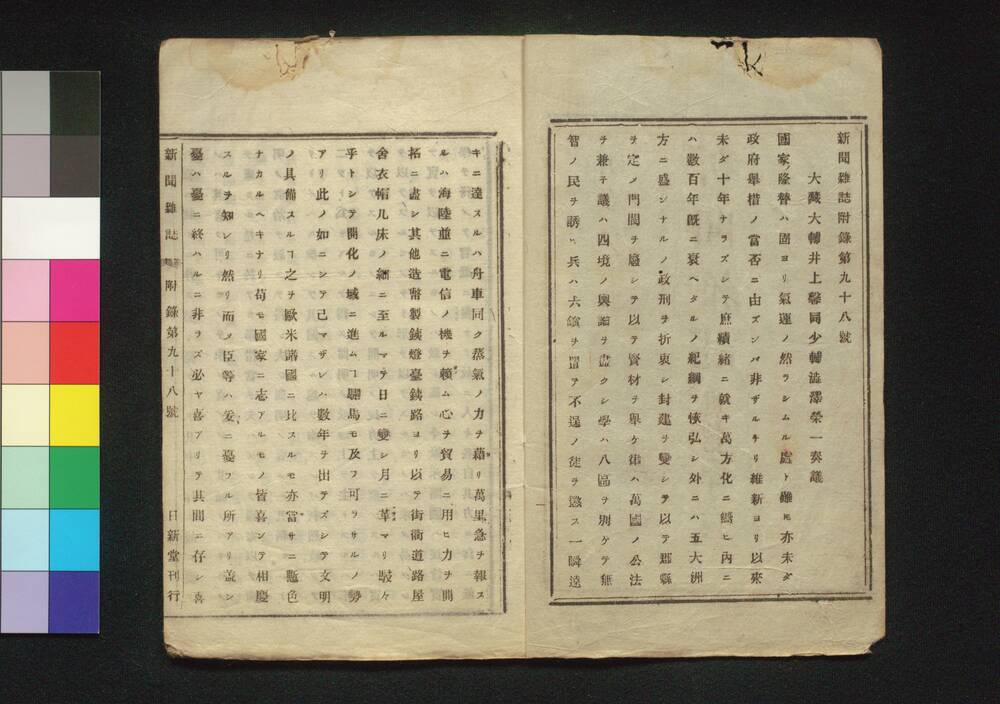 新聞雜誌附錄第九十八號
大藏大輔井上馨同少輔澁澤榮一奏議
國家ノ隆替ハ固ヨリ氣運ノ然ラシムル處ト雖𪜈亦未ダ
政府擧措ノ當否ニ由ズンバ非ザルナリ維新ヨリ以來
未ダ十年ナラズシテ庶績緒ニ就キ萬方化ニ嚮ヒ內ニ
ハ數百年旣ニ衰ヘタルノ紀綱ヲ恢弘シ外ニハ五大洲
方ニ盛シナルノ政刑ヲ折衷シ封建ヲ變シテ以テ郡縣
ヲ定メ門閥ヲ廢シテ以テ賢材ヲ擧ケ律ハ萬國ノ公法
ヲ兼テ議ハ四境ノ輿論ヲ盡クシ學ハ八區ヲ別ケテ無
智ノ民ヲ誘ヒ兵ハ六鎭ヲ置テ不逞ノ徒ヲ懲ス一瞬遠
キニ達スルハ舟車同ク蒸氣ノ力ヲ藉リ萬里急ヲ報ス
ルハ海陸並ニ電信ノ機ヲ賴ム心ヲ貿易ニ用ヒ力ヲ開
拓ニ盡シ其他造幣製鐵燈臺鐵路ヨリ以テ街衢道路屋
舍衣帽几床ノ細ニ至ルマテ日ニ變シ月ニ革マリ駸々
乎トシテ開化ノ域ニ進ムヿ駟馬モ及フ可ラサルノ勢
アリ此ノ如ニシテ已マザレハ數年ヲ出テズシテ文明
ノ具備スルヿ之ヲ歐米諸國ニ比スルモ亦當サニ慙色
ナカルヘキナリ苟モ國家ニ志アルモノ皆喜ンテ相慶
スルヲ知レリ然リ而ソ臣等ハ爰ニ憂フル所アリ蓋シ
憂ハ憂ニ終ハルニ非ラズ必ヤ喜アリテ其間ニ存シ喜
新聞雜誌 附錄第九十八號 日新堂刊行